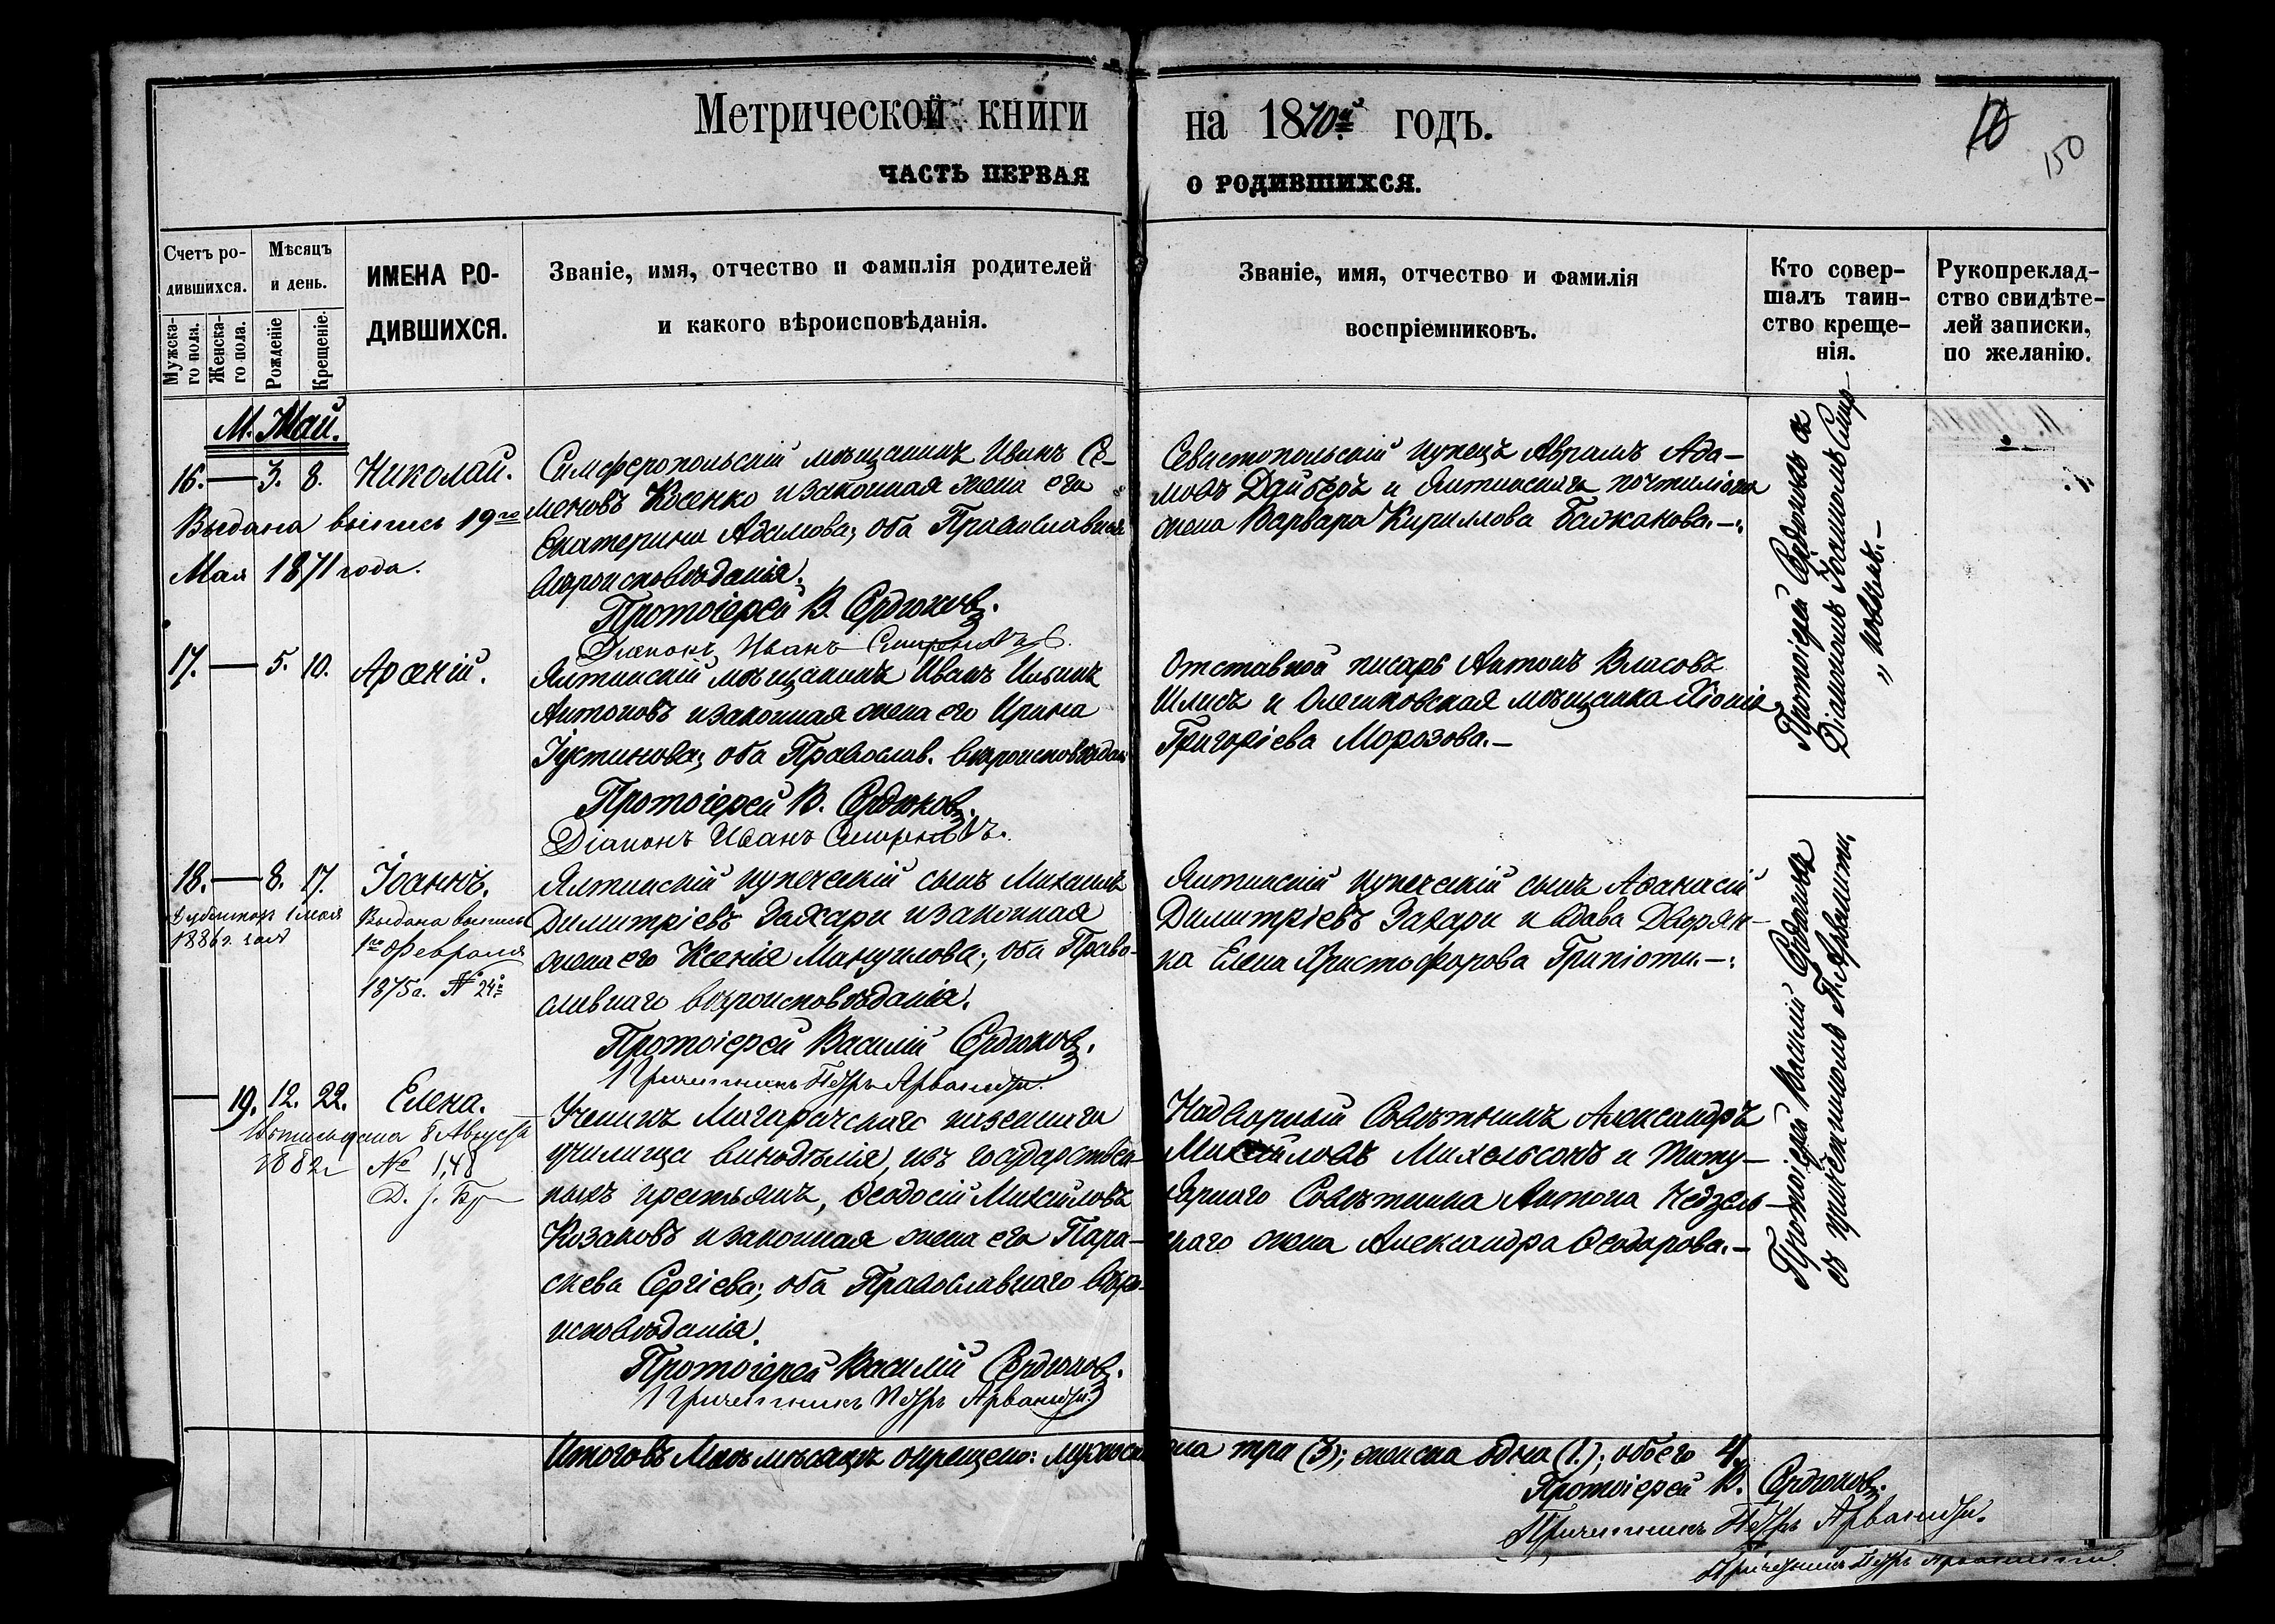 Метрической книги на 1870й годъ.
10
150
ЧАСТЬ ПЕРВАЯ О РОДИВШИХСЯ.
Счетъ ро-
дившихся.
Мужска-
го пола.
Женска-
го пола.
Мѣсяцъ
и день.
Рожденіе
Крещеніе.
ИМЕНА РО-
ДИВШИХСЯ.
Званіе, имя, отчество и фамилія родителей
и какого вѣроисповѣданія.
Званіе, имя, отчество и фамилія
воспріемниковъ.
Кто совер-
шалъ таин-
ство креще-
нія.
Рукоприклад-
ство свидѣте-
лей записки,
по желанію.
М. Май.
16. — 3. 8. Николай.
Выдана выпись 19го
Мая 1871 года.
Симферопольскій мѣщанинъ Иванъ Се-
меновъ Косенко и законная жена его
Екатерина Адамова; оба Православнаго
вѣроисповѣданія.
Протоіерей В. Сердюковъ.
Діаконъ Иванъ Смирновъ
Севастопольскій купецъ Аврамъ Ада-
мовъ Дайберъ и Ялтинскаго почтиліона
жена Варвара Кириллова Бажанова.—
Протоіерей Сердюковъ съ
Діакономъ Іоанномъ Смир-
новымъ.—
17. — 5. 10. Арсеній.
Ялтинскій мѣщанинъ Иванъ Ильинъ
Антоновъ и законная жена его Ирина
Іустинова; оба Православ. вѣроисповѣдан.
Протоіерей В. Сердюковъ.
Діаконъ Иванъ Смирновъ.
Отставной писарь Антонъ Власовъ
Шлисъ и Олешковская мѣщанка Хіонія
Григоріева Морозова.—
18. — 8. 17. Іоаннъ.
1 мая
1886 г.
Выдана выпись
1го Февраля
1875 г. № 24
Ялтинскій купеческій сынъ Михаилъ
Димитріевъ Захари и законная
жена его Ксенія Мануилова; оба Право-
славнаго вѣроисповѣданія.
Протоіерей Василій Сердюковъ.
Причетникъ Петръ Арваниди.
Ялтинскій купеческій сынъ Аѳанасій
Димитріевъ Захари и вдова Дворян-
ка Елена Христофорова Грипіоти.—
Протоіерей Василій Сердюковъ
съ причетникомъ П. Арваниди.
— 19. 12. 22. Елена.
8 Августа
1882 г № 148
Ученикъ Магарачскаго казеннаго
училища винодѣлія, изъ государствен-
ныхъ крестьянъ, Ѳеодосій Михайловъ
Козаковъ и законная жена его Пара-
скева Сергіева; оба Православнаго вѣро-
исповѣданія.
Протоіерей Василій Сердюковъ.
Причетникъ Петръ Арваниди.
Надворный Совѣтникъ Александръ
Михайловъ Михельсонъ и Титу-
лярнаго Совѣтника Антона Недзель-
скаго жена Александра Ѳеодорова.—
Итого въ Маѣ мѣсяцѣ окрещено: мужска пола три (3); женска одна (1.); обоего 4.
Протоіерей В. Сердюковъ.
Причетникъ Петръ Арваниди.
Причетникъ Петръ Арваниди.